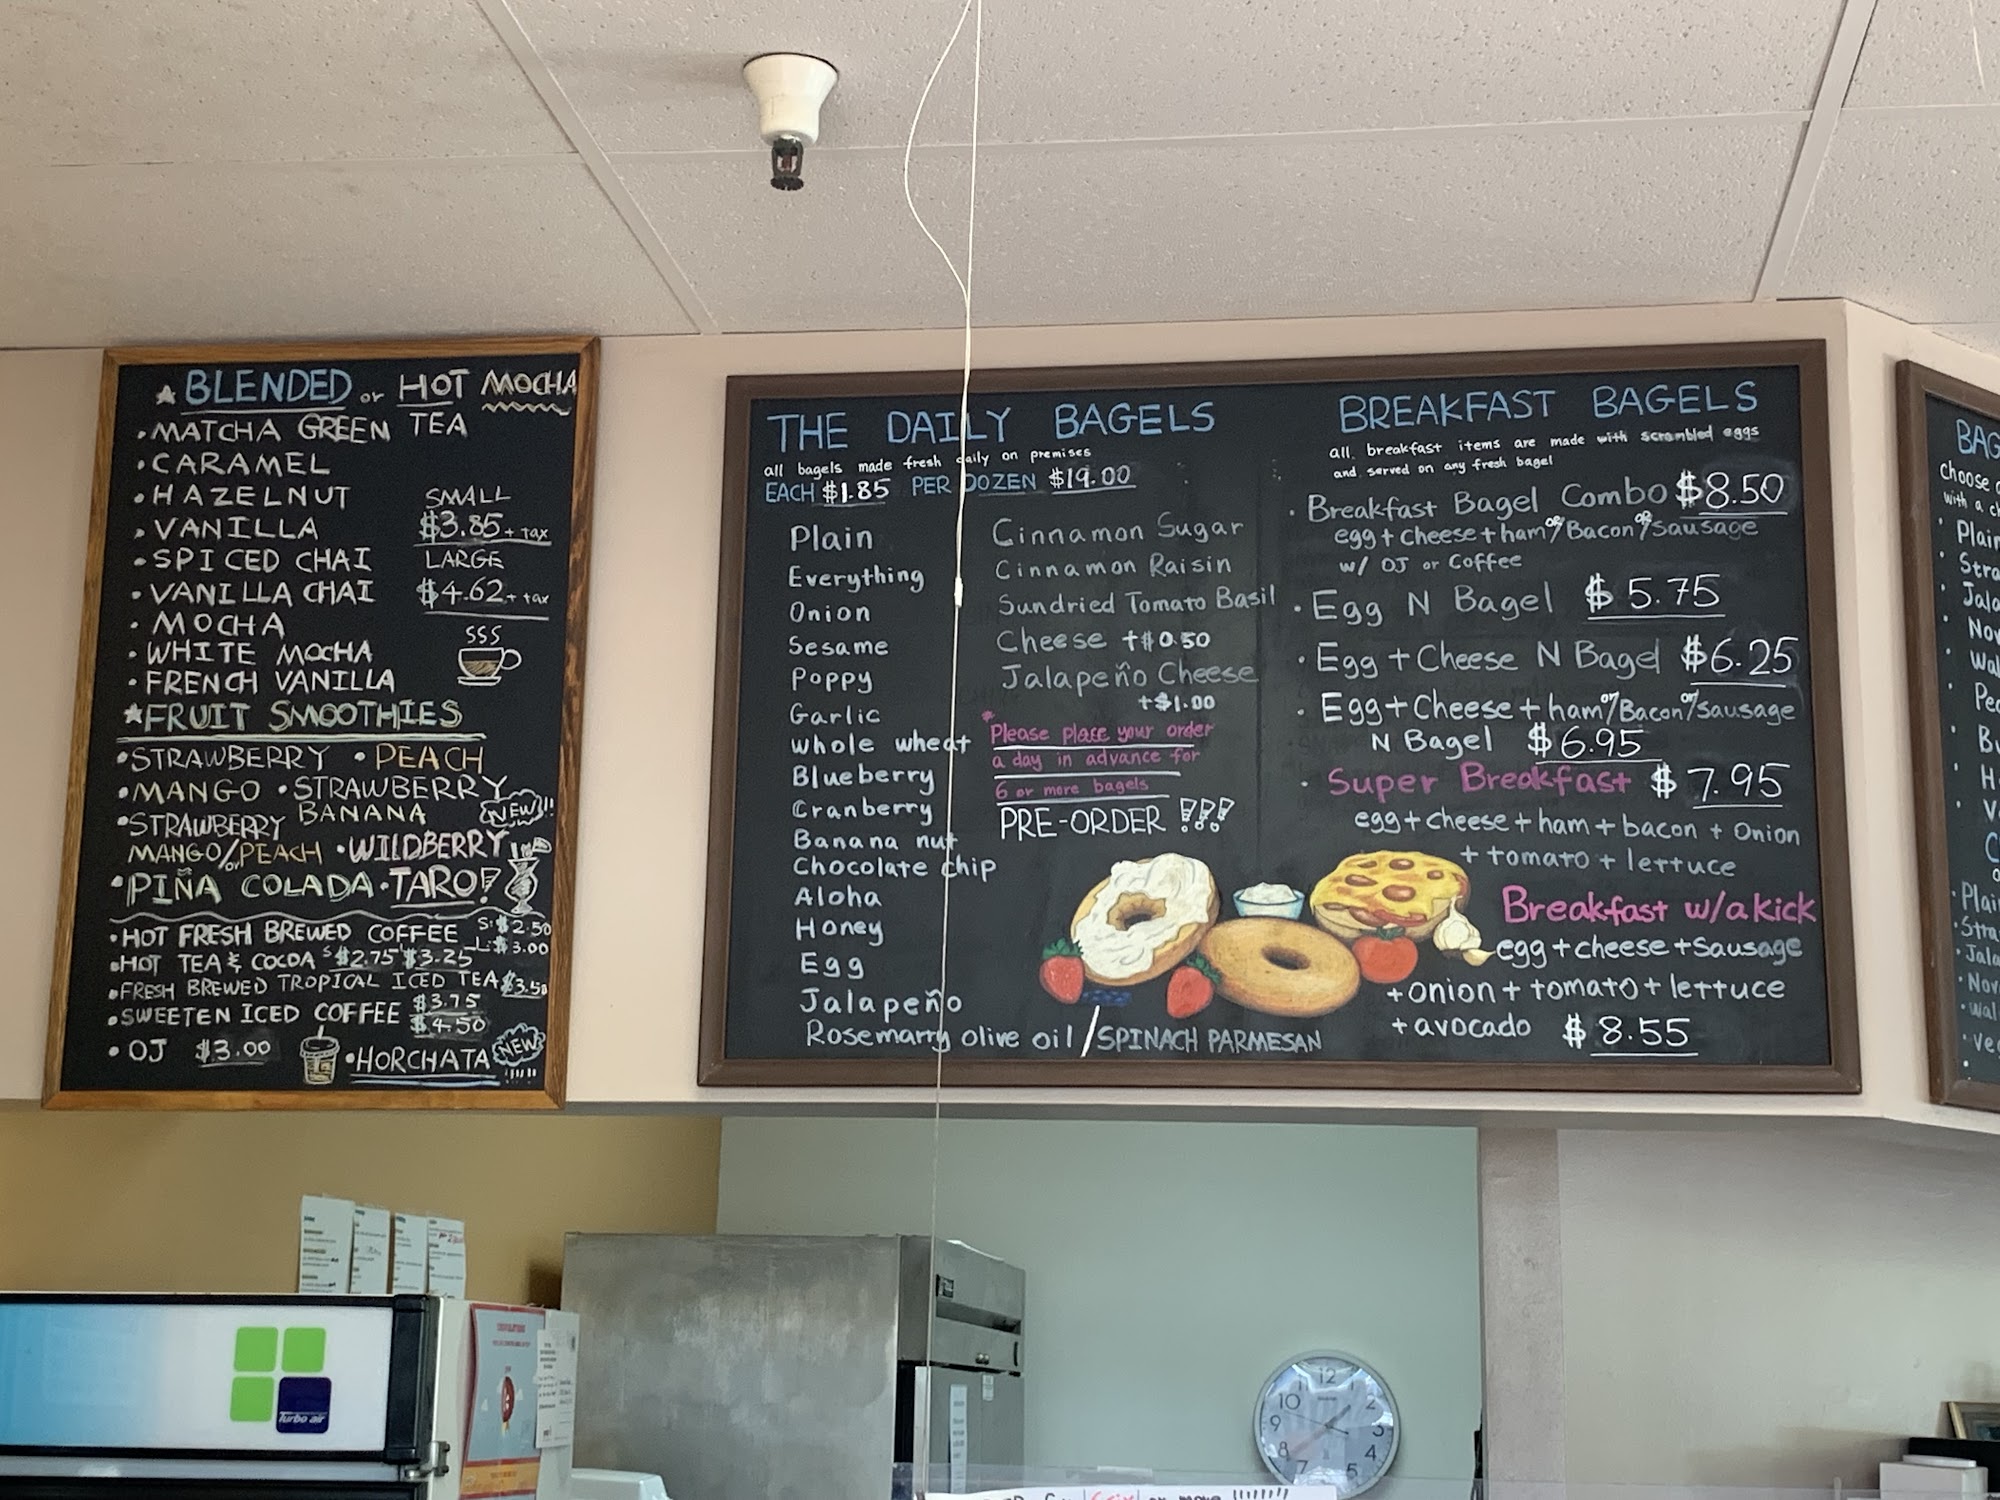 ★ BLENDED or HOT MOCHA
• MATCHA GREEN TEA
• CARAMEL
• HAZELNUT
• VANILLA
• SPICED CHAI
• VANILLA CHAI
• MOCHA
• WHITE MOCHA
• FRENCH VANILLA
SMALL
$3.85 + tax
LARGE
$4.62 + tax
★ FRUIT SMOOTHIES
• STRAWBERRY • PEACH
• MANGO • STRAWBERRY
BANANA NEW!!
• STRAWBERRY
MANGO/or PEACH • WILDBERRY
• PIÑA COLADA • TARO!
• HOT FRESH BREWED COFFEE S: $2.50
L: $3.00
• HOT TEA & COCOA S $2.75 L $3.25
• FRESH BREWED TROPICAL ICED TEA $3.50
• SWEETEN ICED COFFEE $3.75
$4.50
• OJ $3.00 • HORCHATA NEW
THE DAILY BAGELS
all bagels made fresh daily on premises
EACH $1.85 PER DOZEN $19.00
Plain
Everything
Onion
Sesame
Poppy
Garlic
whole wheat
Blueberry
Cranberry
Banana nut
Chocolate chip
Aloha
Honey
Egg
Jalapeño
Rosemarry olive oil / SPINACH PARMESAN
Cinnamon Sugar
Cinnamon Raisin
Sundried Tomato Basil
Cheese +$0.50
Jalapeño Cheese
+$1.00
* Please place your order
a day in advance for
6 or more bagels
PRE-ORDER !!!
BREAKFAST BAGELS
all breakfast items are made with scrambled eggs
and served on any fresh bagel
• Breakfast Bagel Combo $8.50
egg + cheese + ham or/Bacon or/sausage
w/ OJ or Coffee
• Egg N Bagel $5.75
• Egg + Cheese N Bagel $6.25
• Egg + Cheese + ham or/Bacon or/sausage
N Bagel $6.95
• Super Breakfast $7.95
egg + cheese + ham + bacon + onion
+ tomato + lettuce
Breakfast w/a kick
egg + cheese + sausage
+ onion + tomato + lettuce
+ avocado $8.55
BAG
Choose
with a
• Plain
• Stra
• Jala
• Nov
• Wal
• Pec
• Plain
• Stra
• Jala
• Nov
• wal
• veg
Turbo air
12
1
2
3
4
5
7
8
9
10
11